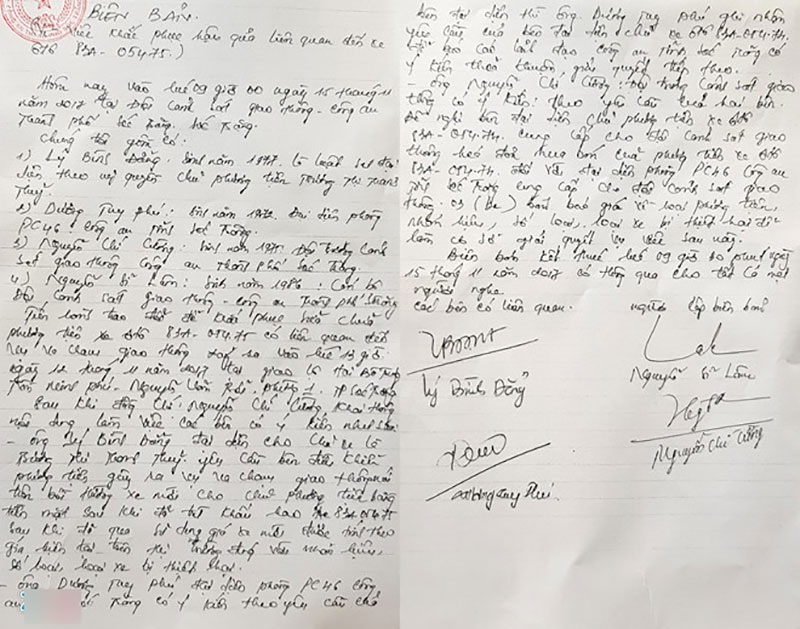 BIÊN BẢN.
khắc phục hậu quả liên quan đến xe
ôtô 83A-05475.)
Hôm nay vào lúc 09 giờ 00 ngày 15 tháng 11
năm 2017 tại Đội Cảnh sát giao thông - Công an
Thành phố Sóc Trăng. Sóc Trăng.
Chúng tôi gồm có:
1) Lý Bình Đẳng. Sinh năm 1977. là đại
diện theo uỷ quyền chủ phương tiện Trương Thị Trang
Thuỷ.
2) Dương Tuy Phú: Sinh năm 1972. Đại diện phòng
PC46 Công an tỉnh Sóc Trăng.
3) Nguyễn Chí Cường: Sinh năm 1975. Đội Trưởng Cảnh
sát giao thông Công an Thành Phố Sóc Trăng.
4) Nguyễn Sĩ Lâm: Sinh năm 1986: Cán bộ
Đội Cảnh sát giao thông - Công an Thành phố
để khắc phục sửa chữa
phương tiện xe ôtô 83A-05475 có liên quan đến
vụ va chạm giao thông xảy ra vào lúc 13 giờ
ngày 12 tháng 11 năm 2017 tại giao lộ
- Nguyễn Văn phường 1. TP Sóc Trăng
Sau khi đồng chí: Nguyễn Chí Cường
nội dung làm việc các bên có ý kiến như sau:
- Ông Lý Bình Đẳng đại diện cho chủ xe là
Trương Thị Trang Thuỷ. yêu cầu bên điều khiển
phương tiện gây ra vụ va chạm giao thông
bồi thường xe mới cho chủ phương tiện bằng
tiền mặt sau khi đã trừ khấu hao xe 83A-05475
sau khi đã qua sử dụng giá xe mới được tính theo
giá hiện tại trên thị trường đúng với nhãn hiệu,
số loại, loại xe bị thiệt hại.
- Ông Dương Tuy Phú đại diện phòng PC46 Công
an Trăng có ý kiến theo yêu cầu của
bên đại diện thì ông. Dương Tuy Phú ghi nhận
yêu cầu của bên đại diện chủ xe ôtô 83A-05474.
báo cáo lãnh đạo công an tỉnh Sóc Trăng có
ý kiến thoả thuận, giải quyết tiếp theo.
- Ông Nguyễn Chí Cường: Đội trưởng Cảnh sát giao
thông có ý kiến: theo yêu cầu của hai bên.
Đề nghị bên đại diện chủ phương tiện xe ôtô
83A-05474. cung cấp cho đội Cảnh sát giao
thông hoá đơn mua bán của phương tiện xe ôtô
83A-05474. đối với đại diện phòng PC46 Công an
tỉnh Sóc Trăng cung cấp cho đội Cảnh sát giao
thông. 03 (ba) bảng báo giá về loại phương tiện,
nhãn hiệu, số loại, loại xe bị thiệt hại để
làm cơ sở giải quyết vụ việc sau này.
Biên bản kết thúc lúc 09 giờ 30 phút ngày
15 tháng 11 năm 2017 có thông qua cho tất cả mọi
người nghe.
Các bên có liên quan. Người lập biên bản
Lý Bình Đẳng
Nguyễn Sĩ Lâm
Nguyễn Chí Cường
Dương Tuy Phú